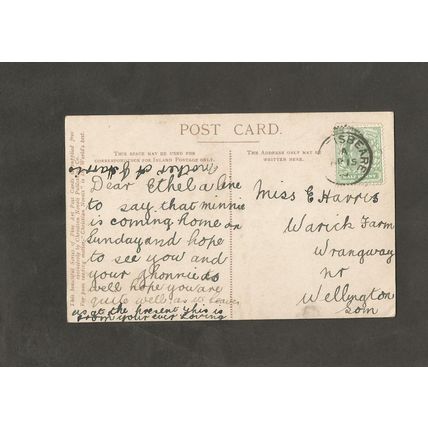 POST CARD.
THIS SPACE MAY BE USED FOR
CORRESPONDENCE FOR INLAND POSTAGE ONLY.
THE ADDRESS ONLY MAY BE
WRITTEN HERE.
Dear Ethel a line
to say that minnie
is coming home on
Sunday and hope
to see you and
your
well hope you are
quite well as
as at the present this is
from your ever Loving
Mother A J Harris
Miss E Harris
Warick Farm
Wrangway
nr
Wellington
Som